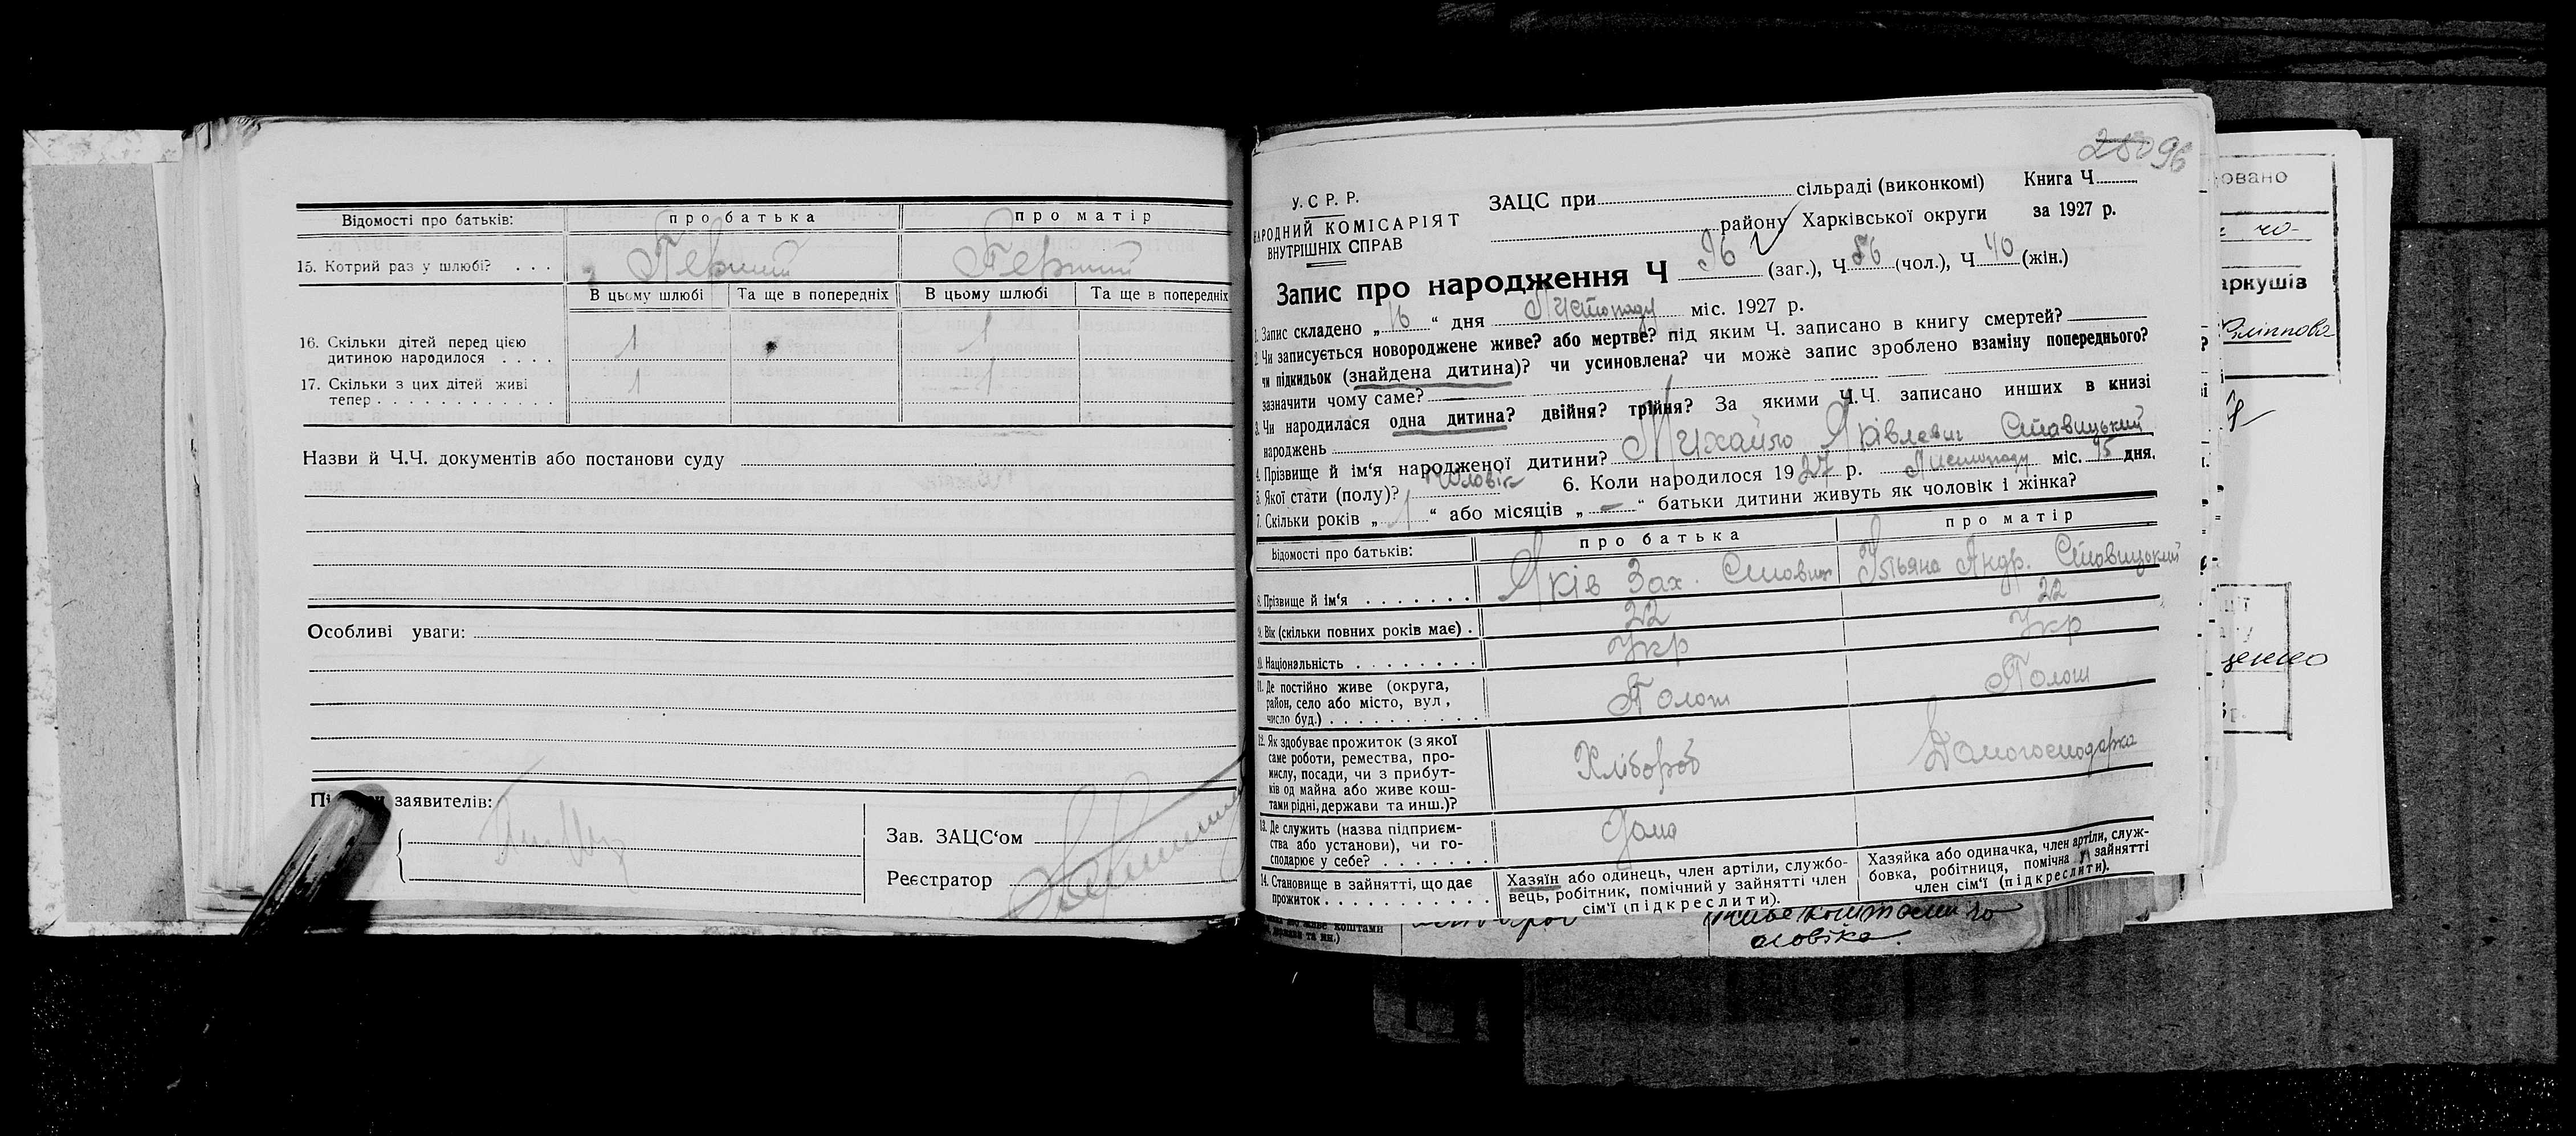 Відомості про батьків: про батька про матір
15. Котрий раз у шлюбі? . . . Перший Перший
В цьому шлюбі Та ще в попередніх В цьому шлюбі Та ще в попередніх
16. Скільки дітей перед цією
дитиною народилося . . . . 1 1
17. Скільки з цих дітей живі
тепер . . . . . . . . . . . . 1 1
Назви й Ч.Ч. документів або постанови суду
Особливі уваги:
заявителів:
Зав. ЗАЦС'ом
Реєстратор
250 96
У.С.Р.Р.
НАРОДНИЙ КОМІСАРІЯТ
ВНУТРІШНІХ СПРАВ
ЗАЦС при сільраді (виконкомі) Книга Ч
району Харківської округи за 1927 р.
Запис про народження Ч 96 (заг.), Ч 56 (чол.), Ч 40 (жін.)
1. Запис складено „16“ дня Листопаду міс. 1927 р.
2. Чи записується новороджене живе? або мертве? під яким Ч. записано в книгу смертей?
чи підкидьок (знайдена дитина)? чи усиновлена? чи може запис зроблено взаміну попереднього?
зазначити чому саме?
3. Чи народилася одна дитина? двійня? трійня? За якими Ч.Ч. записано инших в книзі
народжень
4. Прізвище й ім'я народженої дитини? Михайло Яківлевич Ставицький
5. Якої стати (полу)? Чоловік 6. Коли народилося 1927 р. Листопаду міс. 15 дня.
7. Скільки років „1“ або місяців „–“ батьки дитини живуть як чоловік і жінка?
Відомості про батьків: про батька про матір
8. Прізвище й ім'я . . . . . . . Яків Зах. Ставиц Тетьяна Андр. Ставицький
9. Вік (скільки повних років має) . 22 22
10. Національність . . . . . . . . Укр Укр
11. Де постійно живе (округа,
район, село або місто, вул.,
число буд.) . . . . . . . . . . .
12. Як здобуває прожиток (з якої
саме роботи, ремества, про-
мислу, посади, чи з прибут-
ків од майна або живе кош-
тами рідні, держави та инш.)?
Хлібороб Домогосподарка
13. Де служить (назва підприєм-
ства або установи), чи го-
сподарює у себе? . . . . . . . дома
14. Становище в зайнятті, що дає
прожиток . . . . . . . . . . .
Хазяїн або одинець, член артіли, службо-
вець, робітник, помічний у зайнятті член
сім'ї (підкреслити).
Хазяйка або одиначка, член артіли, служ-
бовка, робітниця, помічна у зайнятті
член сім'ї (підкреслити).
живе коштами
держави та ин.)
живе коштами чо
ловіка.
овано
аркушів